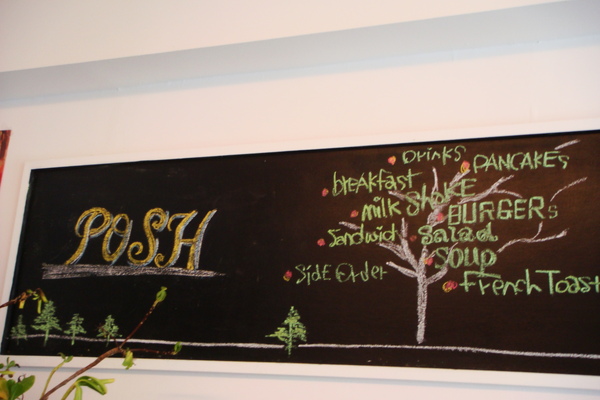 POSH
Drinks
PANCAKEs
breakfast
milk Shake
BURGERs
Sandwich
Salad
SOUP
Side Order
French Toast